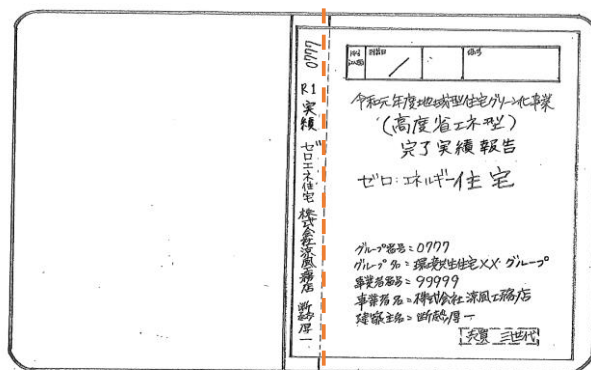 0777
R1
実績
ゼロエネ住宅
株式会社涼風工務店
断熱厚一
令和元年度地域型住宅グリーン化事業
(高度省エネ型)
完了実績報告
ゼロ・エネルギー住宅
グループ番号=0777
グループ名=環境共生住宅XX・グループ
事業者番号=99999
事業者名=株式会社涼風工務店
建築主名=断熱厚一
三世代